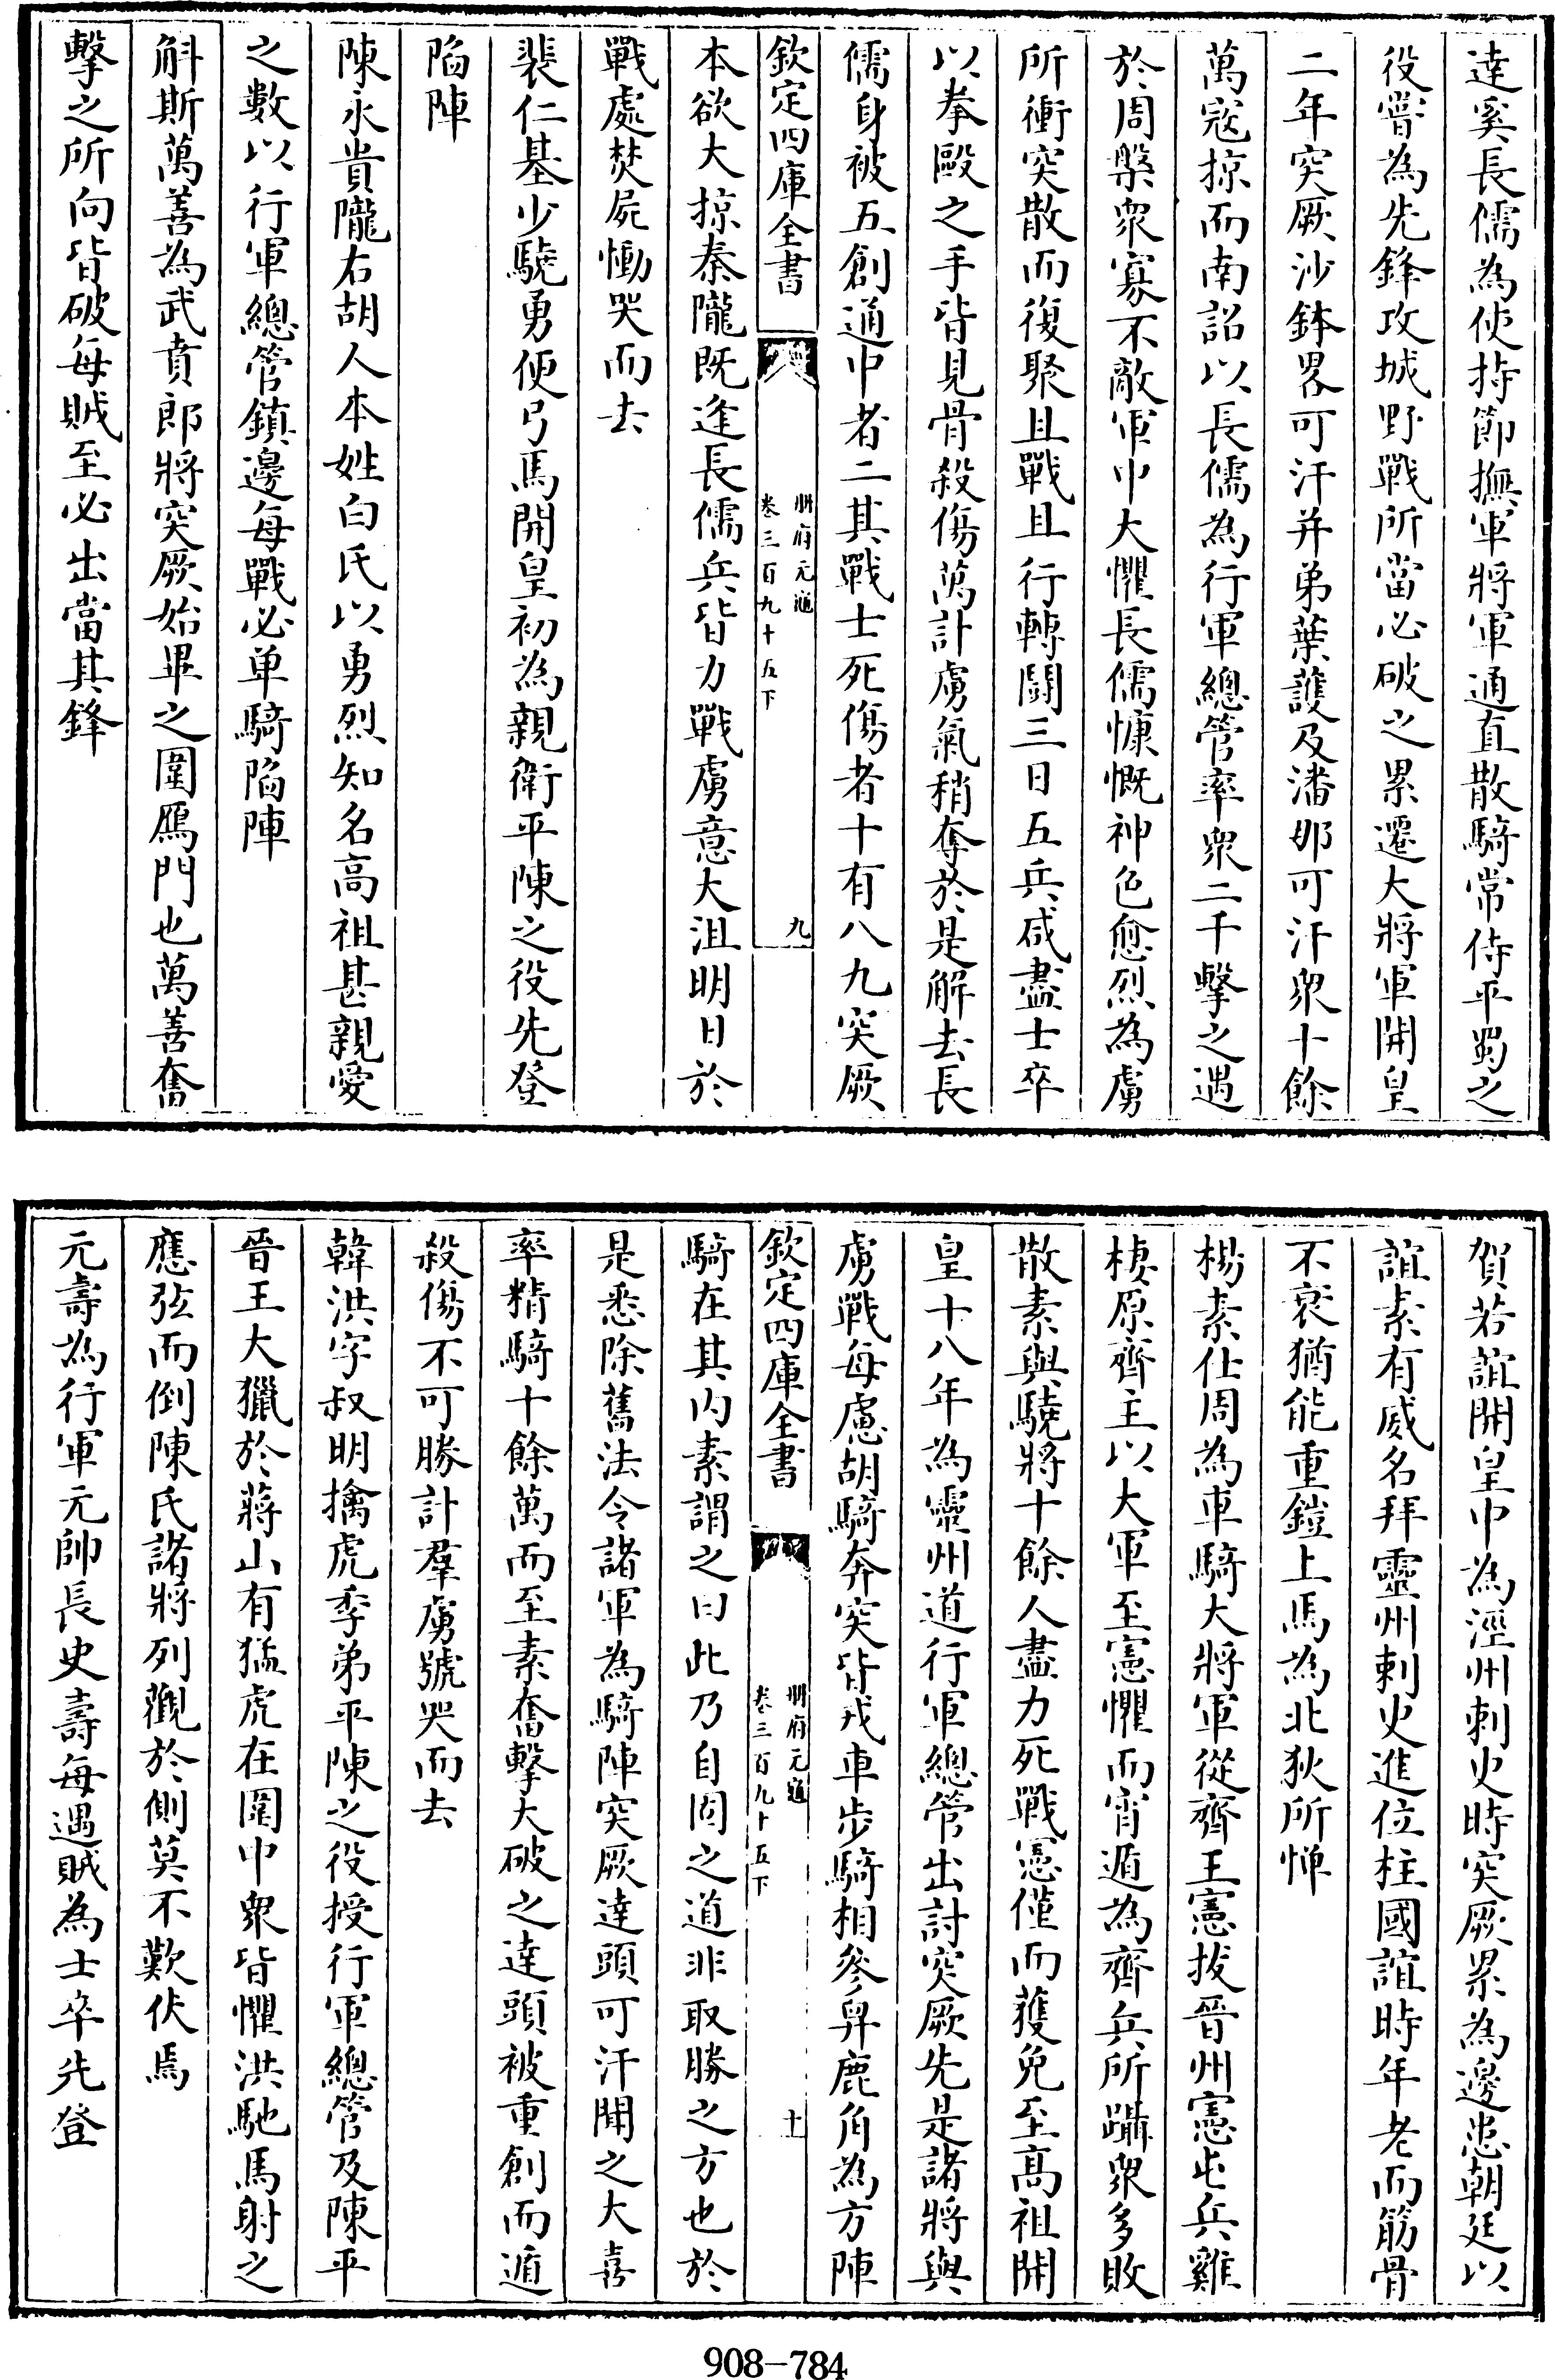 達奚長儒為使持節撫軍將軍通直散騎常侍平蜀之
役嘗為先鋒攻城野戰所當必破之累遷大將軍開皇
二年突厥沙鉢畧可汗并弟葉護及潘那可汗衆十餘
萬寇掠而南詔以長儒為行軍總管率衆二千擊之遇
於周槃衆寡不敵軍中大懼長儒慷慨神色愈烈為虜
所衝突散而復聚且戰且行轉鬬三日五兵咸盡士卒
以拳毆之手皆見骨殺傷萬計虜氣稍奪於是解去長
儒身被五創通中者二其戰士死傷者十有八九突厥
欽定四庫全書
冊府元龜
卷三百九十五下
九
本欲大掠秦隴既逢長儒兵皆力戰虜意大沮明日於
戰處焚屍慟哭而去
裴仁基少驍勇便弓馬開皇初為親衛平陳之役先登
陷陣
陳永貴隴右胡人本姓白氏以勇烈知名高祖甚親愛
之數以行軍總管鎮邊每戰必单騎陷陣
斛斯萬善為武賁郎將突厥始畢之圍鴈門也萬善奮
擊之所向皆破每賊至必出當其鋒
賀若誼開皇中為涇州刺史時突厥累為邊患朝廷以
誼素有威名拜靈州刺史進位柱國誼時年老而筋骨
不衰猶能重鎧上馬為北狄所憚
楊素仕周為車騎大將軍從齊王憲拔晉州憲屯兵雞
棲原齊主以大軍至憲懼而宵遁為齊兵所躡衆多敗
散素與驍將十餘人盡力死戰憲僅而獲免至高祖開
皇十八年為靈州道行軍總管出討突厥先是諸將與
虜戰每慮胡騎奔突皆戎車步騎相參舁鹿角為方陣
欽定四庫全書
冊府元龜
卷三百九十五下
十
騎在其内素謂之曰此乃自固之道非取勝之方也於
是悉除舊法令諸軍為騎陣突厥達頭可汗聞之大喜
率精騎十餘萬而至素奮擊大破之達頭被重創而遁
殺傷不可勝計羣虜號哭而去
韓洪字叔明擒虎季弟平陳之役授行軍總管及陳平
晉王大獵於蔣山有猛虎在圍中衆皆懼洪馳馬射之
應弦而倒陳氏諸將列觀於側莫不歎伏焉
元壽為行軍元帥長史壽每遇賊為士卒先登
908-784